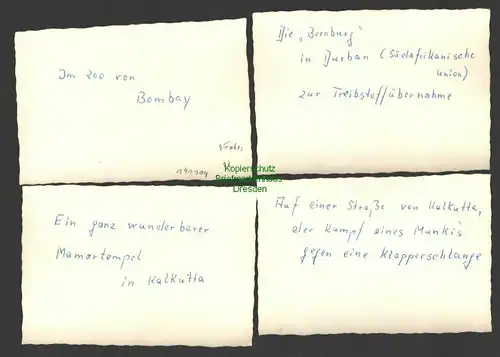 Im Zoo von
Bombay
141104
Die „Bernburg"
in Durban (Südafrikanische
Union)
zur Treibstoffübernahme
Kopierschutz
Briefmarkenhaus
Dresden
Ein ganz wunderbarer
Mamortempel
in Kalkutta
Auf einer Straße von Kalkutta,
der Kampf eines Munki's
gegen eine Klapperschlange